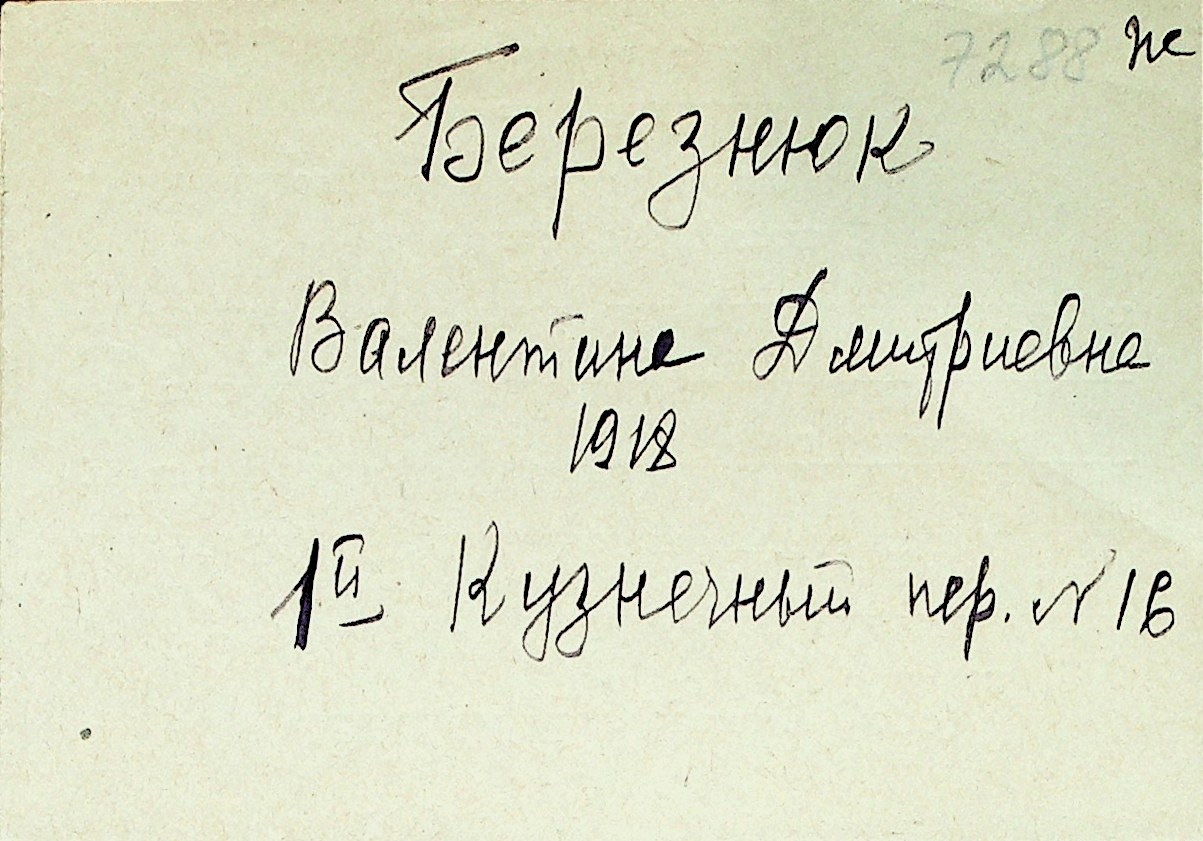 7288 пе
Березнюк
Валентина Дмитриевна
1918
1й Кузнечный пер. N 16